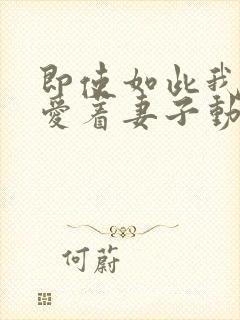 即使如此我
爱着妻子動
何蔚